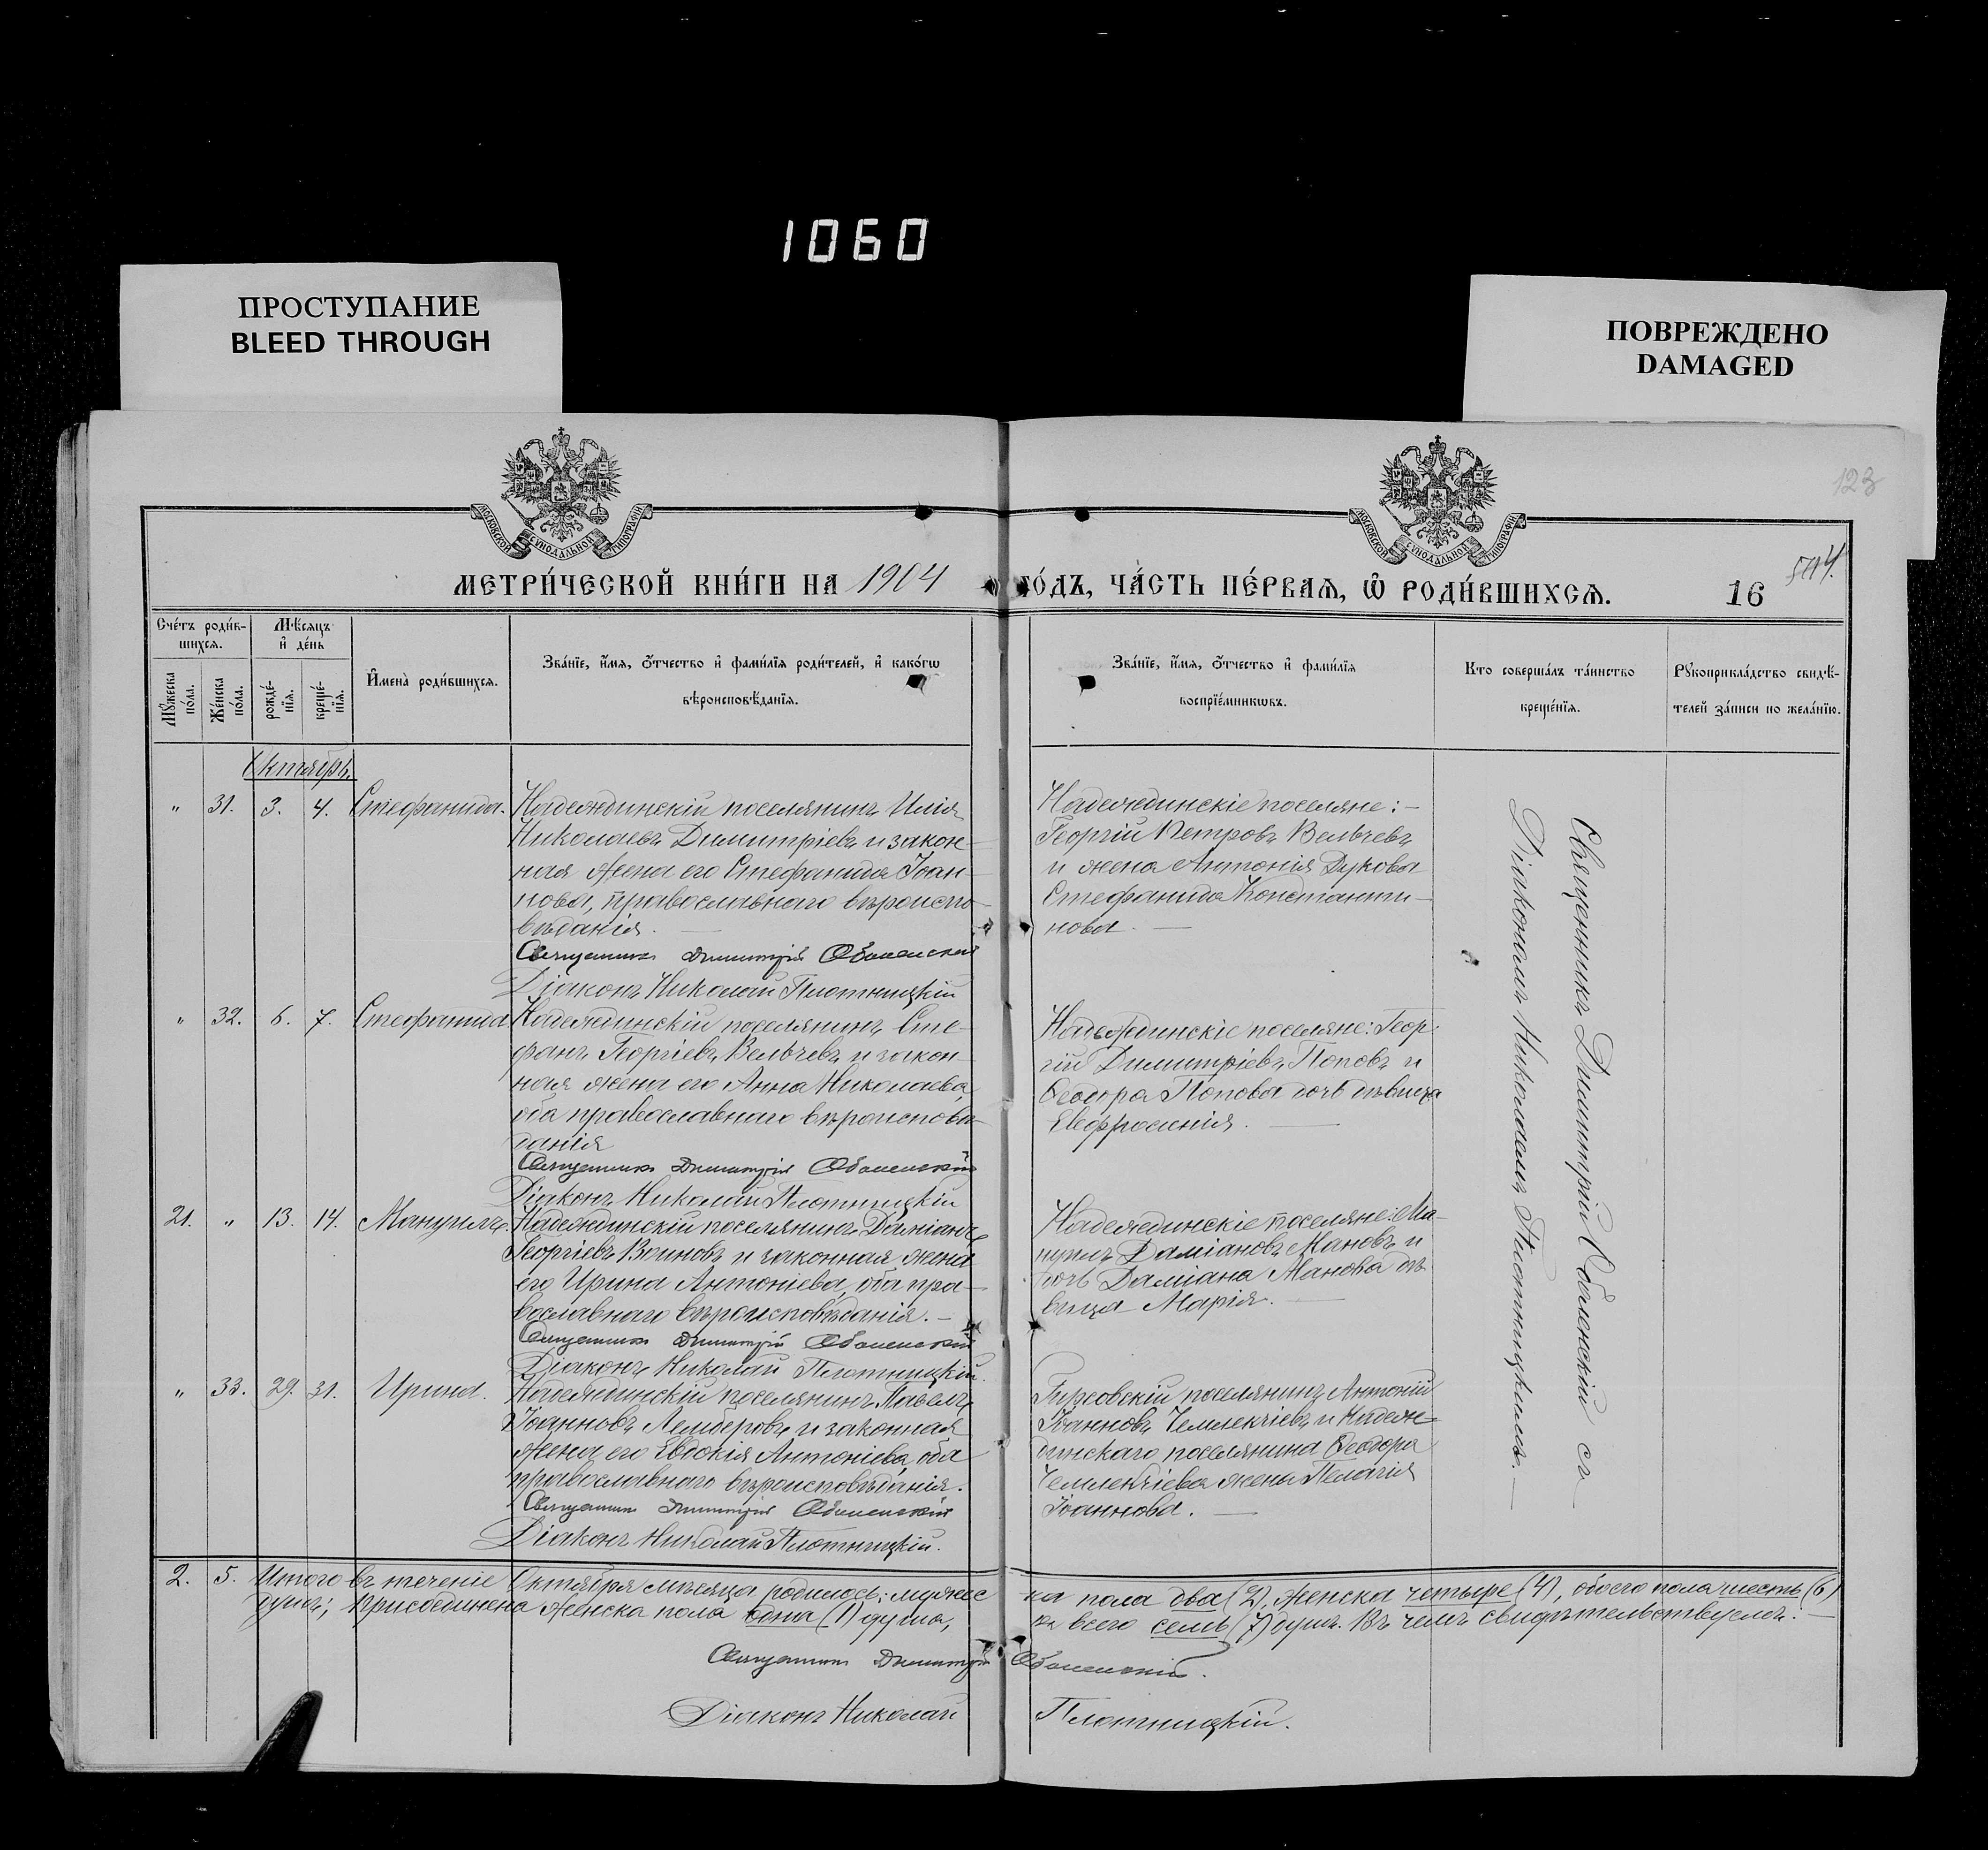 1060
ПРОСТУПАНИЕ
BLEED THROUGH
ПОВРЕЖДЕНО
DAMAGED
123
МОСКОВСКОЙ СѴНОДАЛЬНОЙ ТИПОГРАФІИ
МОСКОВСКОЙ СѴНОДАЛЬНОЙ ТИПОГРАФІИ
МЕТРИ́ЧЕСКОЙ КНИ́ГИ НА 1904
ГО́ДЪ, ЧА́СТЬ ПЕ́РВАѦ, Ѽ РОДИ́ВШИХСѦ.
16
Счéтъ роди́в-
шихсѧ.
Мѣ́сѧцъ
и҆ де́нь
Мꙋ́жеска
по́ла.
Же́нска
по́ла.
рожде́-
нїѧ.
креще́-
нїѧ.
И҆мена̀ роди́вшихсѧ.
Зва́нїе, и҆́мѧ, ѻ҆́тчество и҆ фами́лїѧ роди́телей, и҆ како́гѡ
вѣроисповѣ́данїѧ.
Зва́нїе, и҆́мѧ, ѻ҆́тчество и҆ фами́лїѧ
воспрїе́мникѡвъ.
Кто соверша́лъ та́инство
креще́нїѧ.
Рꙋкоприкла́дство свидѣ́-
телей за́писи по жела́нїю.
Октябрь.
" 31. 3. 4. Стефанида.
Надеждинскій поселянинъ Илія
Николаевъ Димитріевъ и закон-
ная жена его Стефанида Іоан-
нова, православнаго вѣроиспо-
вѣданія.
Священникъ Димитрій Оболенскій
Діаконъ Николай Плотницкій
Надеждинскіе поселяне:-
Георгій Петровъ Вельчевъ
и жена Антонія Дукова
Стефанида Константи-
нова.
" 32. 6. 7. Стефанида
Надеждинскій поселянинъ Сте-
фанъ Георгіевъ Вельчевъ и закон-
ная жена его Анна Николаева,
оба православнаго вѣроисповѣ-
данія
Священникъ Димитрій Оболенскій
Діаконъ Николай Плотницкій
Надеждинскіе поселяне: Геор-
гій Димитріевъ Поповъ и
Ѳеодора Попова дочь дѣвица
Евфросинія.
21. " 13. 14. Мануилъ.
Надеждинскій поселянинъ Даміанъ
Георгіевъ Воиновъ и законная жена
его Ирина Антоніева, оба пра-
вославнаго вѣроисповѣданія.-
Священникъ Димитрій Оболенскій
Діаконъ Николай Плотницкій.
Надеждинскіе поселяне: Ма-
нуилъ Даміановъ Мановъ и
дочь Даміана Манова дѣ-
вица Марія.
" 33. 29. 31. Ирина.
Надеждинскій поселянинъ Павелъ
Іоанновъ Лемберовъ и законная
жена его Евдокія Антоніева, оба
православнаго вѣроисповѣданія.
Священникъ Димитрій Оболенскій
Діаконъ Николай Плотницкій.
поселянинъ Антоній
Іоанновъ Чемлекчіевъ и Надеж-
динскаго поселянина Ѳеодора
Чемлекчіева жена Пелагія
Іоаннова.
Священникъ Димитрій Оболенскій съ
Діакономъ Николаемъ Плотницкимъ.
2. 5. Итого въ теченіе Октября мѣсяца родилось: мужес-
ка пола два (2), женска четыре (4), обоего пола шесть (6)
душъ; присоединена женска пола одна (1) душа,
а всего семь (7) душъ. Въ чемъ свидѣтельствуемъ:
Священникъ Димитрій Оболенскій.
Діаконъ Николай Плотницкій.